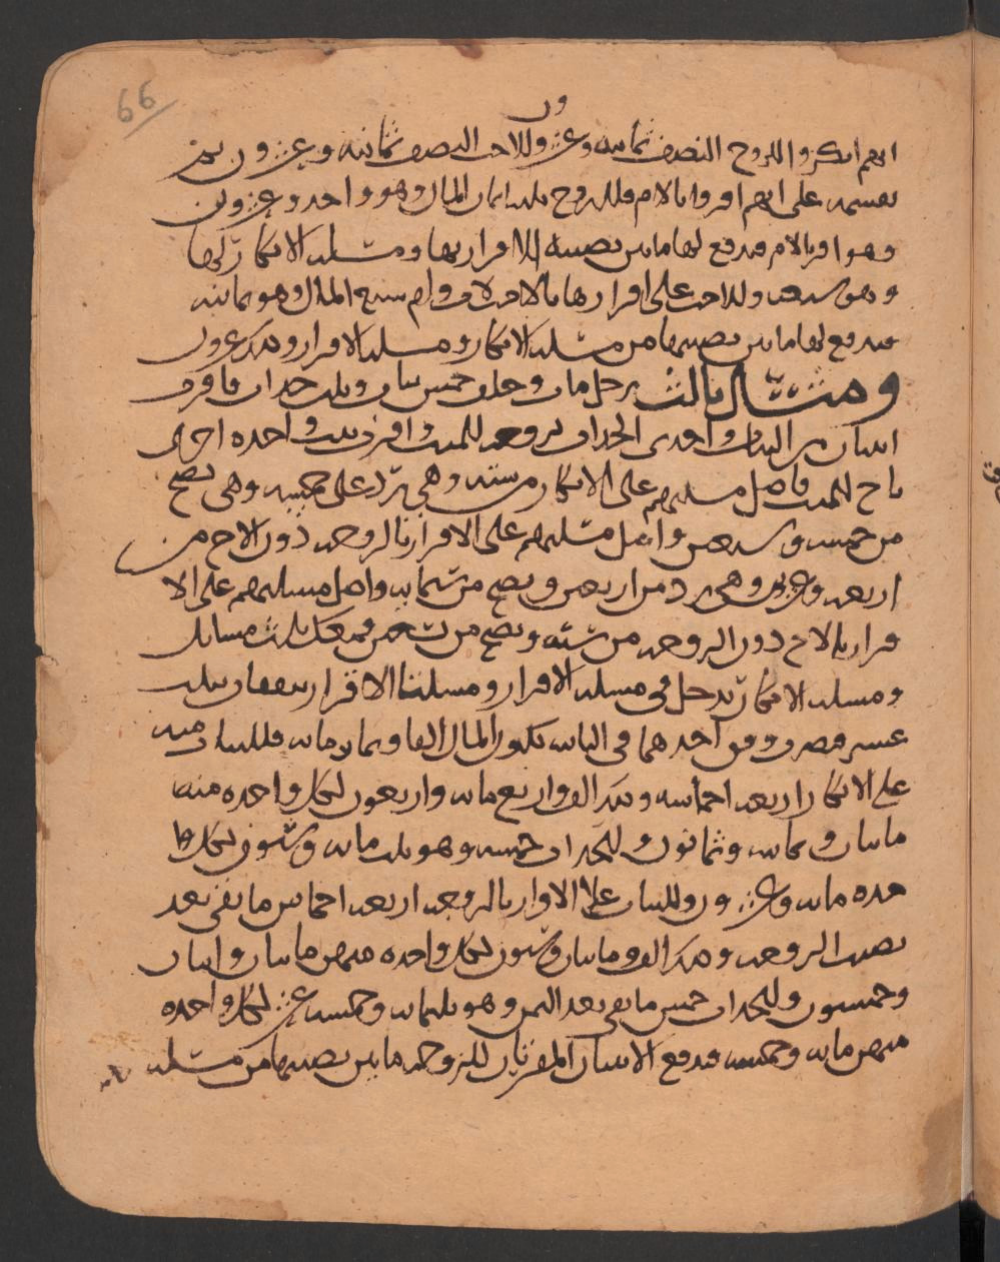 66
ون
انهم انكروا للزوج النصف ثمانيه وعشر وللاخت النصف ثمانيه وعشرون ثم
نقسمه على انهم اقروا بالام فللزوج ثلثه اثمان المال وهو واحد وعشرون
وهو اقر بالام فيدفع لها مابين نصيبه الاقرار بها ومسله الانكار لها
وهو سبعه وللاخت على اقرارها بالاخت لاب وام سبع المال وهو ثمانيه
فتدفع لها مابين نصيبها من مسله الانكار ومسله الاقرار وهو عشرون
ومثال ثالث رجل مات وخلف خمس بنات وثلث جدات فاقرت
اثنتان من البنات واحدى الجدات بزوجه للميت واقرت بنت واحده اخرى
باخ للميت فاصل مسلتهم على الانكار من سته وهي ترد على خمسه وهي تصح
من خمسه وسبعين واصل مسلتهم على الاقرار بالزوجه دون الاخ من
اربعه وعشرين وهي ترد من اربعين وتصح من ستمايه واصل مسلتهم على الا
قرار بالاخ دون الزوجه من سته وتصح من تسعين فمعك ثلث مسايل
ومسله الانكار تدخل في مسله الاقرار ومسلتا الاقرار يتفقان بثلث
عشر فضرب وفق احدهما في الثاني تكون المال الفا وثمان مايه فللبنات منه
على الانكار اربعه اخماسه وذلك الف واربع مايه واربعون لكل واحده منه
مايتان وثمانيه وثمانون وللجدات خمسه وهو ثلث مايه وستون لكل وا
حده مايه وعشرون وللبنات على الاقرار بالزوجه اربعه اخماس ما بقي بعد
نصيب الزوجه وذلك الف ومايتان وستون لكل واحده منهن مايتان واثنان
وخمسون وللجدات خمس ما بقي بعد الثمن وهو ثلثمايه وخمسه عشر لكل واحده
منهن مايه وخمسه فتدفع الابنتان المقرتان للزوجه مابين نصيبهما من مسله